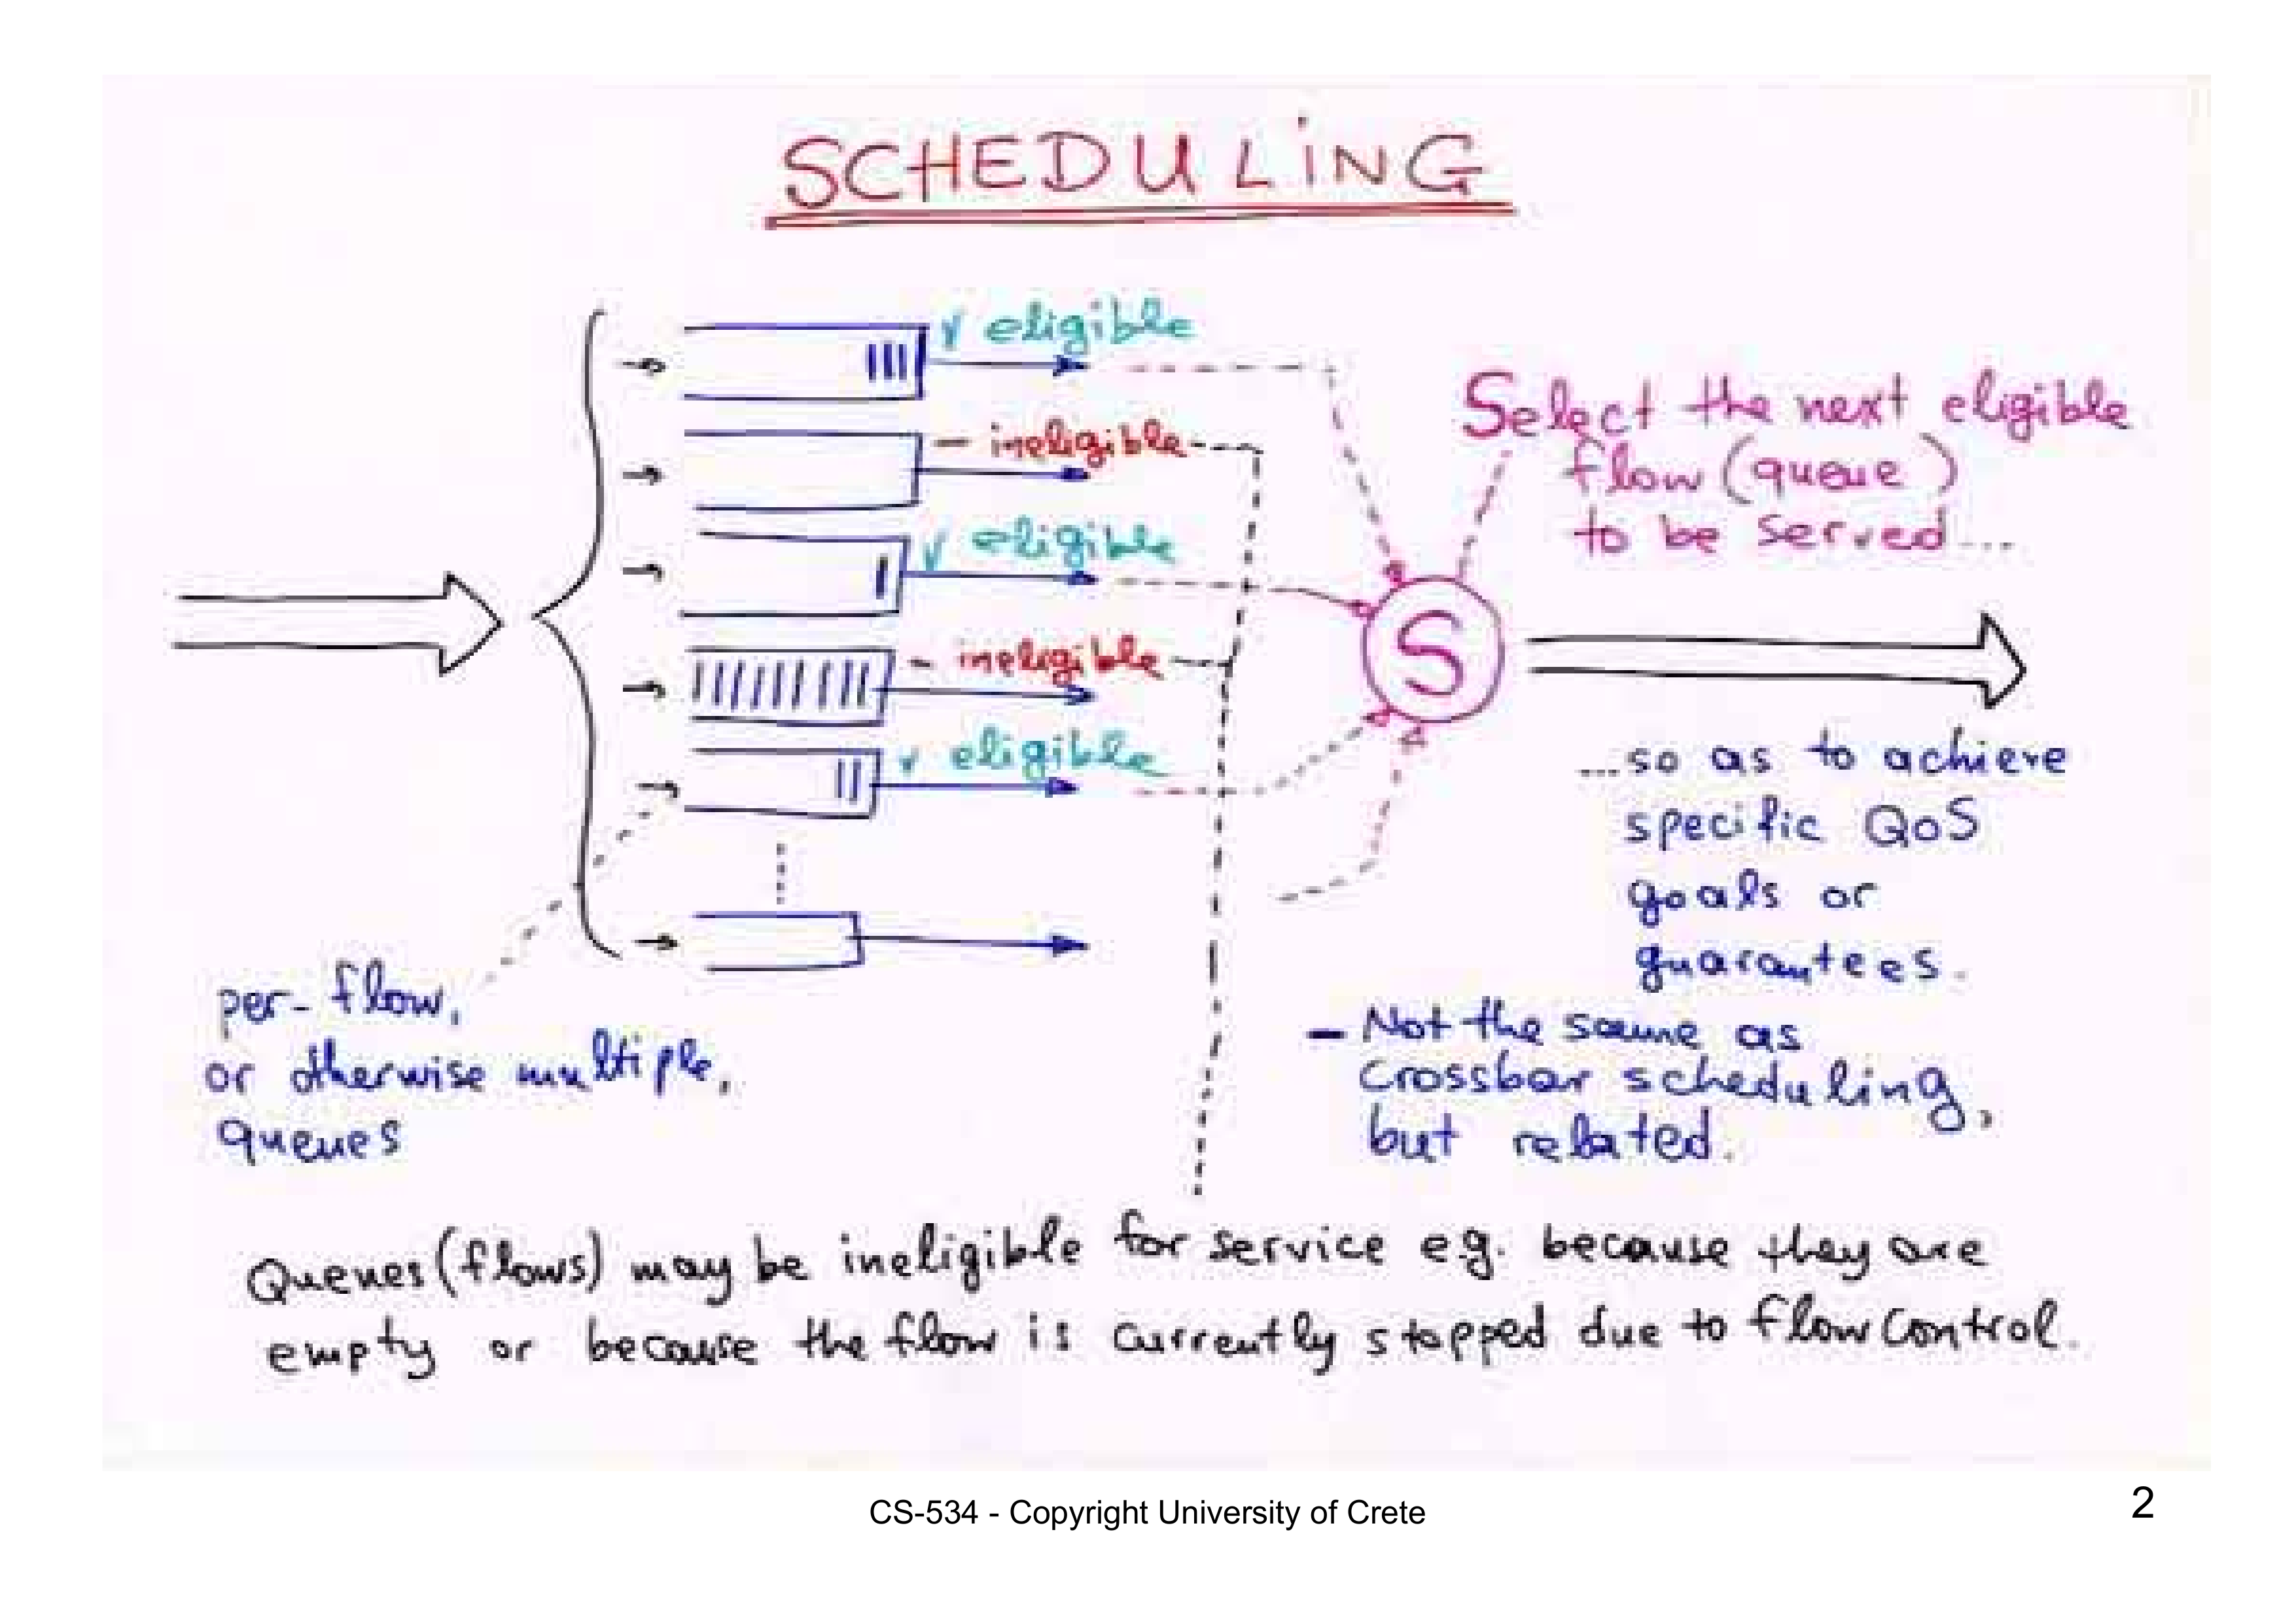 SCHEDULING
v eligible
- ineligible
v eligible
- ineligible
v eligible
Select the next eligible
flow (queue)
to be served...
S
...so as to achieve
specific QoS
goals or
guarantees.
- Not the same as
crossbar scheduling,
but related.
per-flow,
or otherwise multiple,
queues
Queues (flows) may be ineligible for service e.g. because they are
empty or because the flow is currently stopped due to flow control.
CS-534 - Copyright University of Crete
2